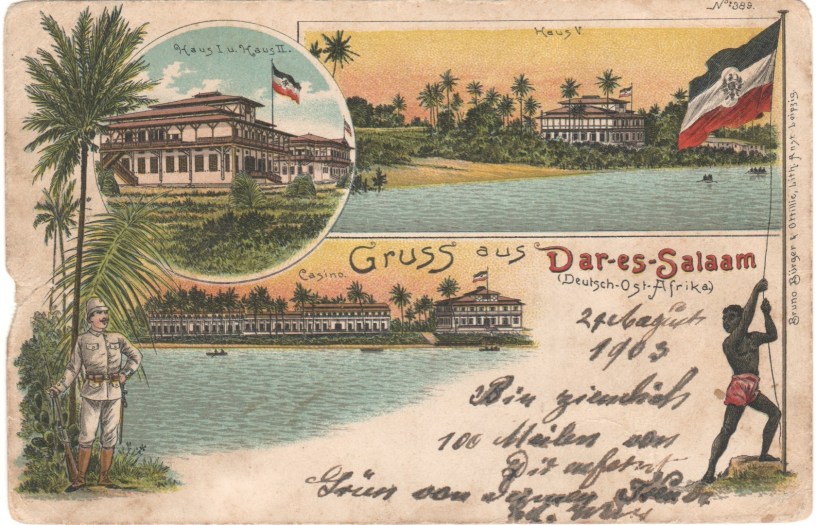 No 1389.
Haus I u. Haus II.
Haus V.
Gruss aus Dar-es-Salaam
(Deutsch-Ost-Afrika)
Casino.
1903
Bin ziemlich
100 Meilen von
Dir entfernt
von
Bruno Bürger & Ottillie, Lith. Anst. Leipzig.